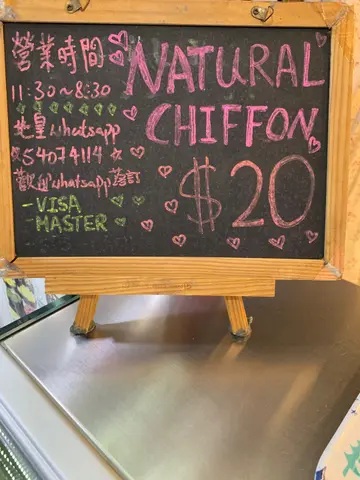 營業時間
11:30~8:30
老皇whatsapp
54074114
歡迎whatsapp落訂
-VISA
-MASTER
NATURAL
CHIFFON
$20